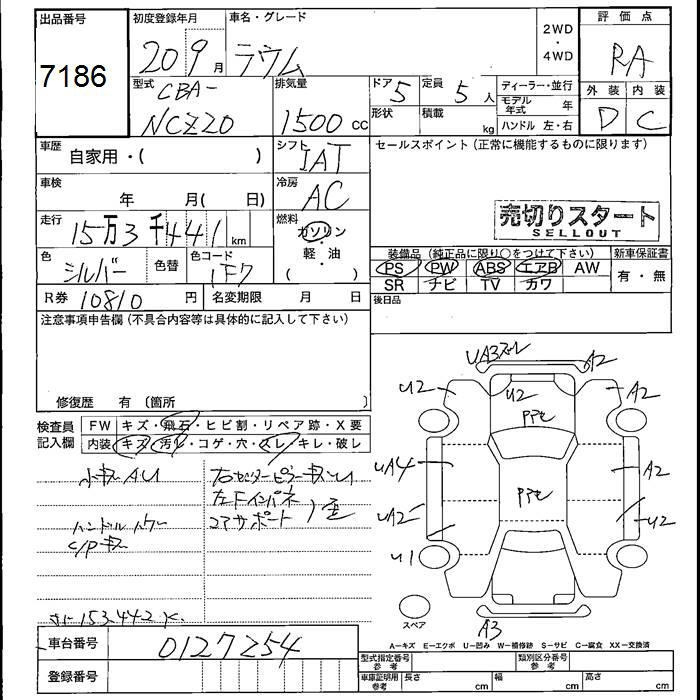 出品番号 初度登録年月 車名・グレード 2WD・4WD 評価点
7186 20 9月 ラウム RA
型式 CBA- 排気量 ドア 5 定員 5人 ディーラー・並行 外装 内装
NCZ20 1500cc 形状 積載 kg モデル年式 年 D C
ハンドル 左・右
車歴 自家用・( ) シフト IAT セールスポイント(正常に機能するものに限ります)
車検 年 月( 日) 冷房 AC
売切りスタート
SELLOUT
走行 15万3千441km 燃料 ガソリン・軽・油 ( )
色 シルバー 色替 色コード 1F7
装備品(純正品に限り○をつけて下さい) 新車保証書
PS PW ABS エアB AW 有・無
SR ナビ TV カワ
R券 10810円 名変期限 月 日 後日品
注意事項申告欄(不具合内容等は具体的に記入して下さい)
修復歴 有〔箇所 〕
検査員記入欄 FW キズ・飛石・ヒビ割・リペア跡・X要
内装 キズ・汚レ・コゲ・穴・スレ・キレ・破レ
小キズAU
右センターピラーキズ
左Fインパネ
コアサポート
ハンドル
C/Pキズ
153442K
UA3 A2
U2 U2 PPC A2
UA4 PPC A2
UA2 U2
U1
スペア A3
A-キズ E-エクボ U-凹み W-補修跡 S-サビ C-腐食 XX-交換済
車台番号 0127254
型式指定番号 参考 類別区分番号 参考
登録番号
車庫証明用 参考 長さ cm 幅 cm 高さ cm